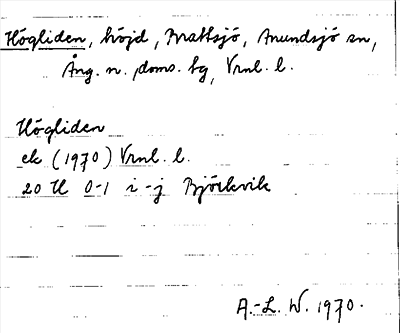 Högliden, höjd, Brattsjö, Anundsjö sn,
Ång. n. doms. tg, Vrnl. l.
Högliden
ek (1970) Vrnl. l.
20 H 0-1 i-j Björkvik
A.-L. W. 1970.